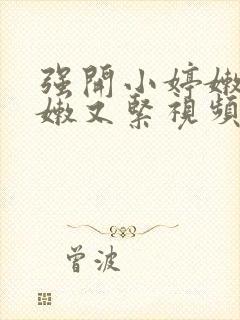 强開小婷嫩
嫩又緊視頻
曾波